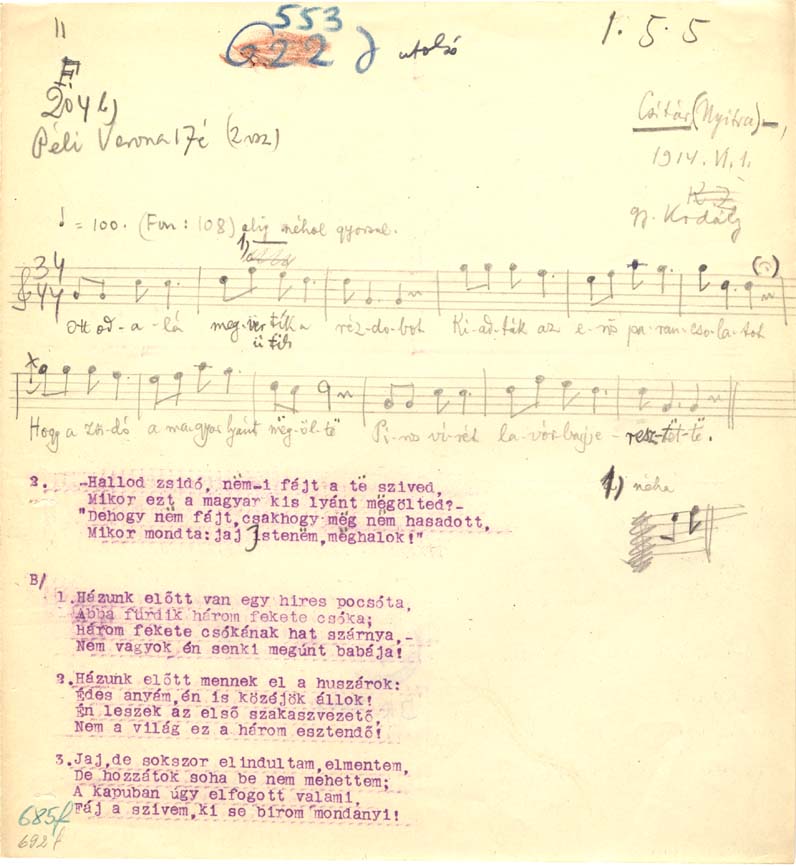 11
553
622 d utolsó
1. 5. 5
F
204 b)
Péli Verona 17é (2 vsz)
Csitár (Nyitra),
1914. VI. 1.
K Z
gy. Kodály
♩ = 100. (Fon : 108) alig néhol gyorsul.
1)
3 4
4 4
Ott od-a-lá meg-ver-ték a réz-do-bot Ki-ad-ták az e-ső pa-ran-cso-la-tot
ü tik
x
Hogy a zsi-dó a ma-gyar lyánt mëg-öl-të Pi-ros vi-rét la-vór-ba jje-resz-tët-të.
2. -Hallod zsidó, nëm-i fájt a të szived,
Mikor ezt a magyar kis lyánt mëgölted?-
"Dehogy nëm fájt, csakhogy mëg nëm hasadott,
Mikor mondta: jaj Istenëm, mëghalok!"
1.) néha
B/
1. Házunk előtt van egy hires pocsóta,
Abba fürdik három fekete csóka;
Három fekete csókának hat szárnya,-
Nem vagyok én senki megúnt babája!
2. Házunk előtt mennek el a huszárok:
Édes anyám, én is közéjök állok!
Én leszek az első szakaszvezető,
Nem a világ ez a három esztendő!
3. Jaj, de sokszor elindultam, elmentem,
De hozzátok soha be nem mehettem;
A kapuban úgy elfogott valami,
Fáj a szivem, ki se birom mondanyi!
685f
692 f